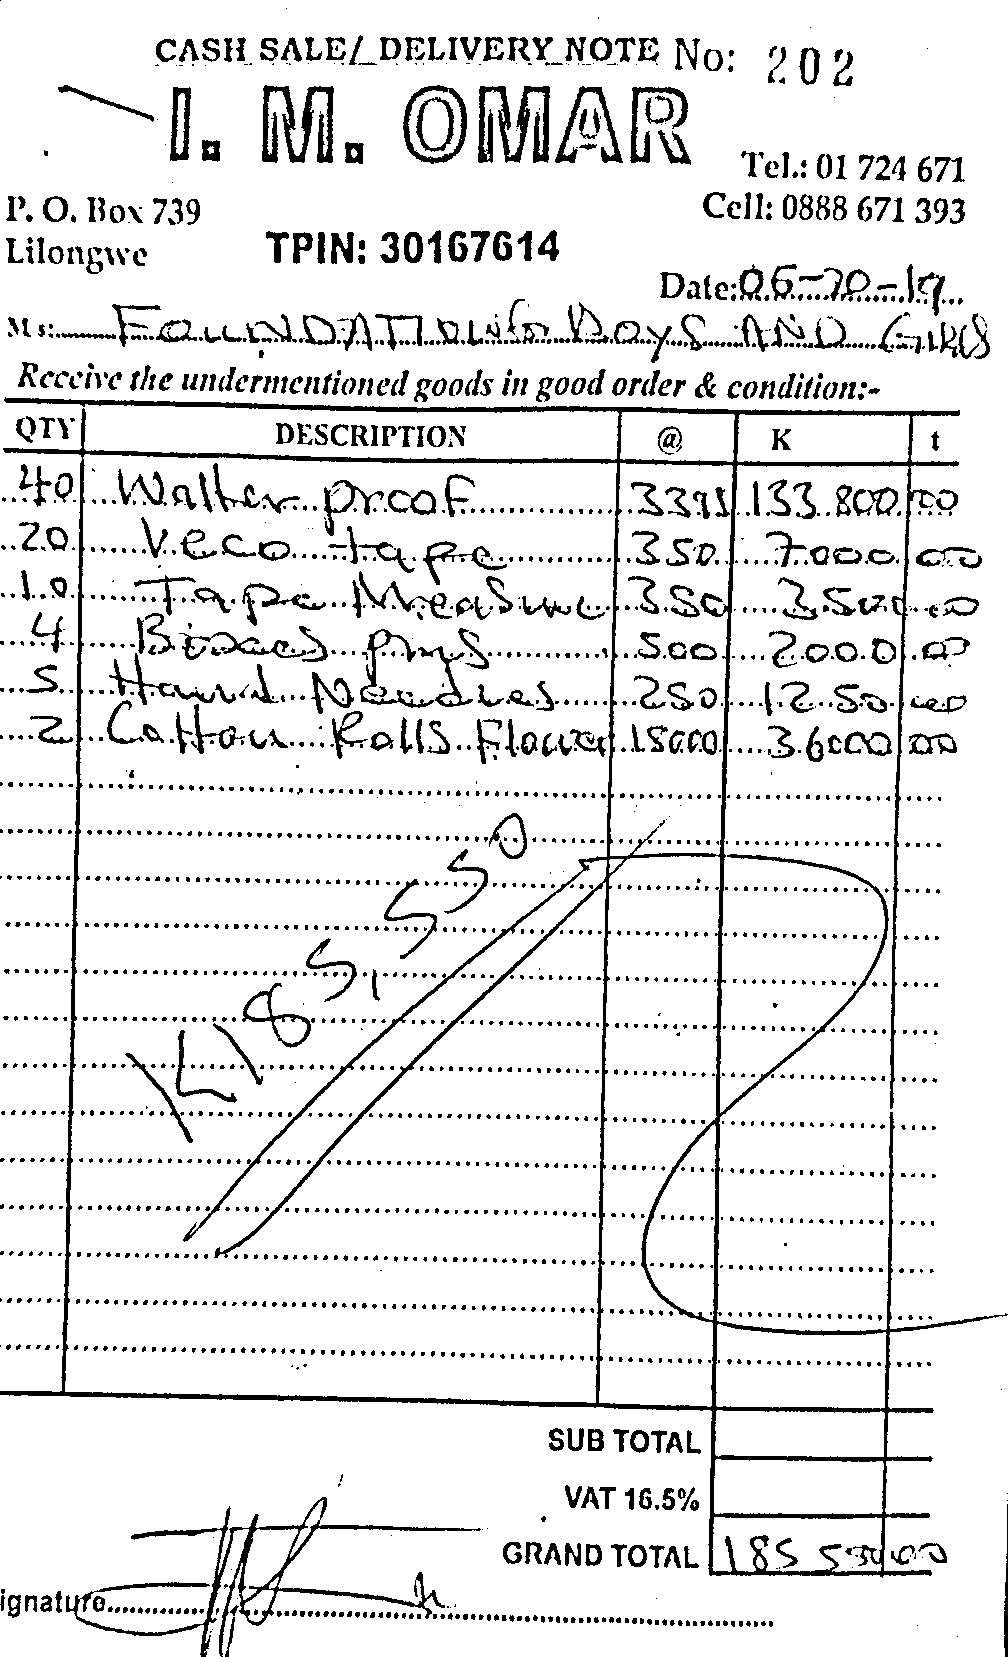 CASH SALE/ DELIVERY NOTE No: 202
I. M. OMAR
Tel.: 01 724 671
P. O. Box 739 Cell: 0888 671 393
Lilongwe TPIN: 30167614
Date: 06-20-19
Ms: FOUNDATION for BOYS AND GIRLS
Receive the undermentioned goods in good order & condition:-
QTY DESCRIPTION @ K t
40 Walter proof 3395 133.800 00
20 Veco tape 350 7000 00
10 Tape Measure 350 3500 00
4 pins 500 2000 00
5 Hand Needles 250 1250 00
2 Cotton Rolls Flower 18000 36000 00
K185,550
SUB TOTAL
VAT 16.5%
GRAND TOTAL 185 550.00
ignature